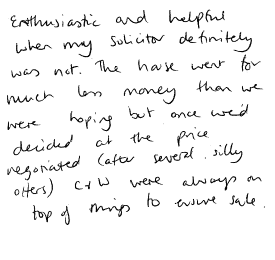 Enthusiastic and helpful
when my solicitor definitely
was not. The house went for
much less money than we
were hoping but once we'd
decided at the price
negotiated (after several silly
offers) C&W were always on
top of things to ensure sale.